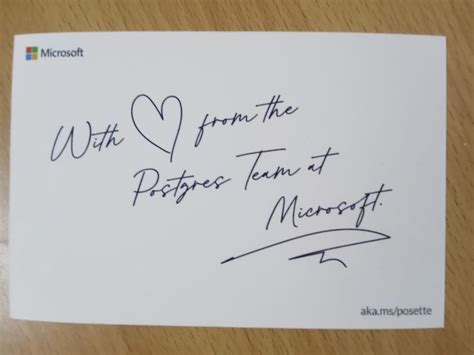 Microsoft
With ♡ from the
Postgres Team at
Microsoft.
aka.ms/posette